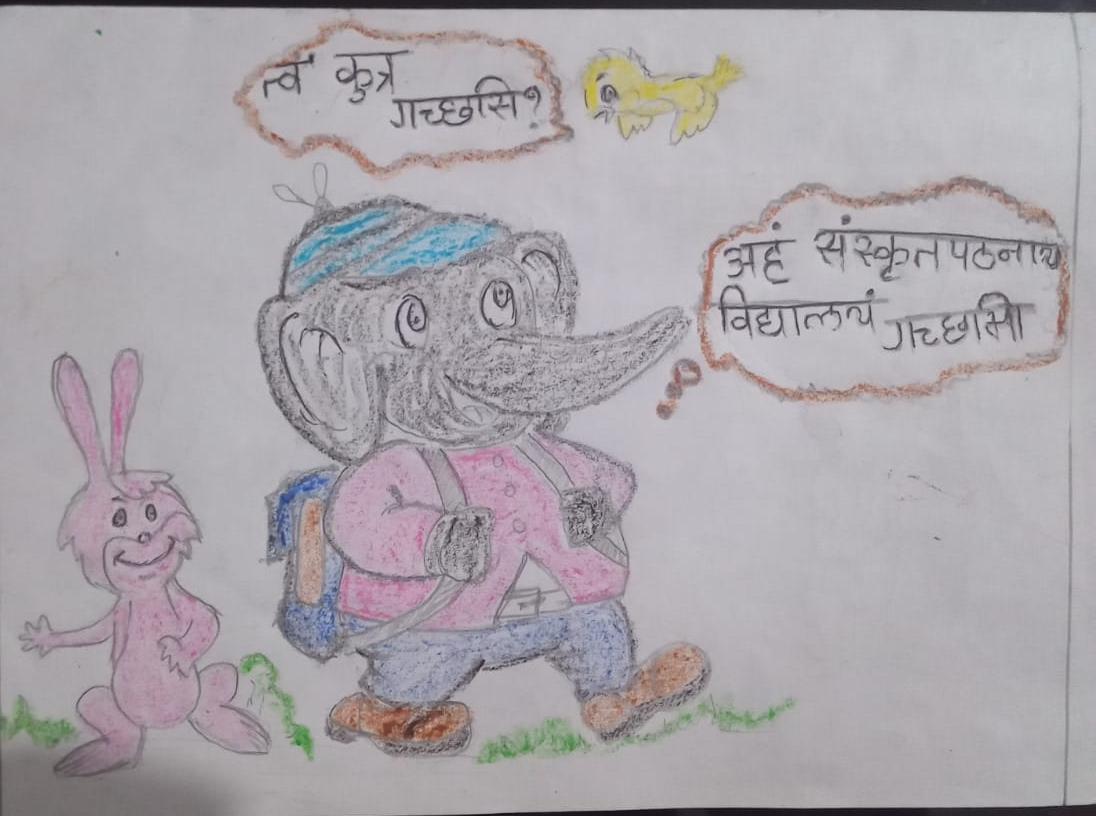 त्वं कुत्र
गच्छसि?
अहं संस्कृतपठनाय
विद्यालयं गच्छामि